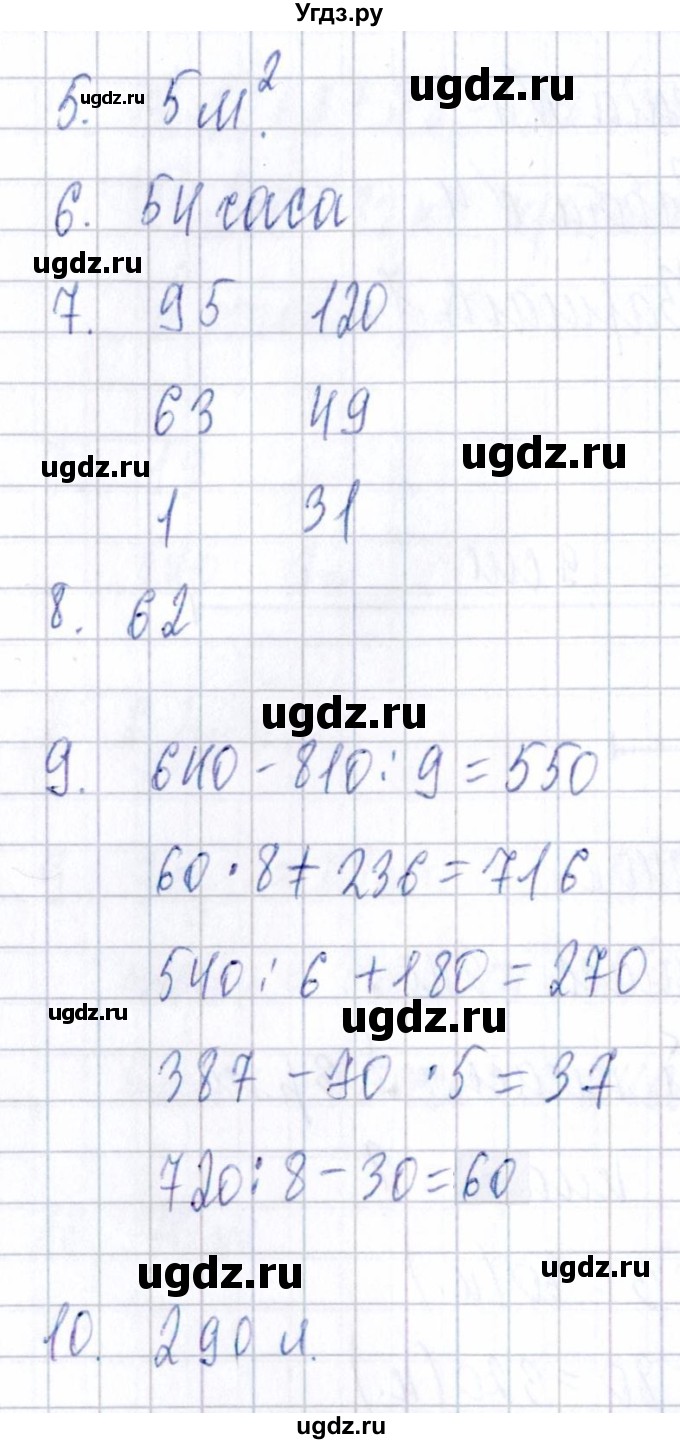 Угдз.ру
5. 5 м².
ugdz.ru
ugdz.ru
6. 54 часа
ugdz.ru
7. 95 120
63 49
ugdz.ru
ugdz.ru
1 31
8. 62
ugdz.ru
9. 640 - 810 : 9 = 550
60 · 8 + 236 = 716
540 : 6 + 180 = 270
ugdz.ru
ugdz.ru
387 - 70 · 5 = 37
720 : 8 - 30 = 60
ugdz.ru
ugdz.ru
10. 290 л.
ugdz.ru